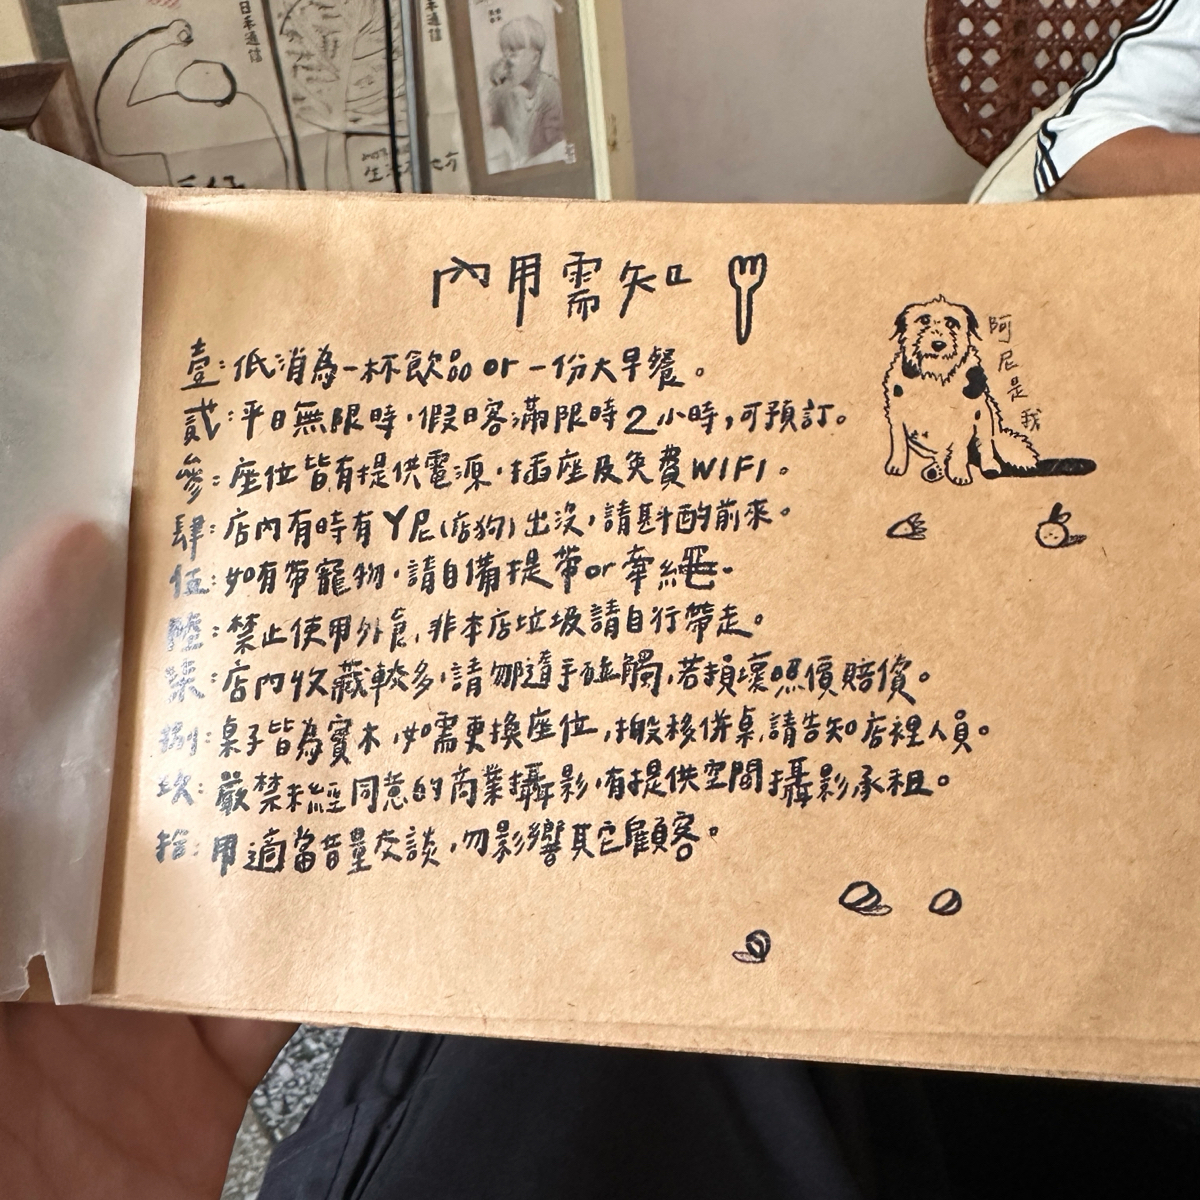 日禾通信
生活 地方
內用需知
阿尼是我
壹:低消為一杯飲品or一份大早餐。
貳:平日無限時,假日客滿限時2小時,可預訂。
參:座位皆有提供電源,插座及免費WIFI。
肆:店內有時有丫尼(店狗)出沒,請斟酌前來。
伍:如有帶寵物,請自備提帶or牽繩。
陸:禁止使用外食,非本店垃圾請自行帶走。
柒:店內收藏較多,請勿隨手碰觸,若損壞照價賠償。
捌:桌子皆為實木,如需更換座位,搬移併桌,請告知店裡人員。
玖:嚴禁未經同意的商業攝影,有提供空間攝影承租。
拾:用適當音量交談,勿影響其它顧客。